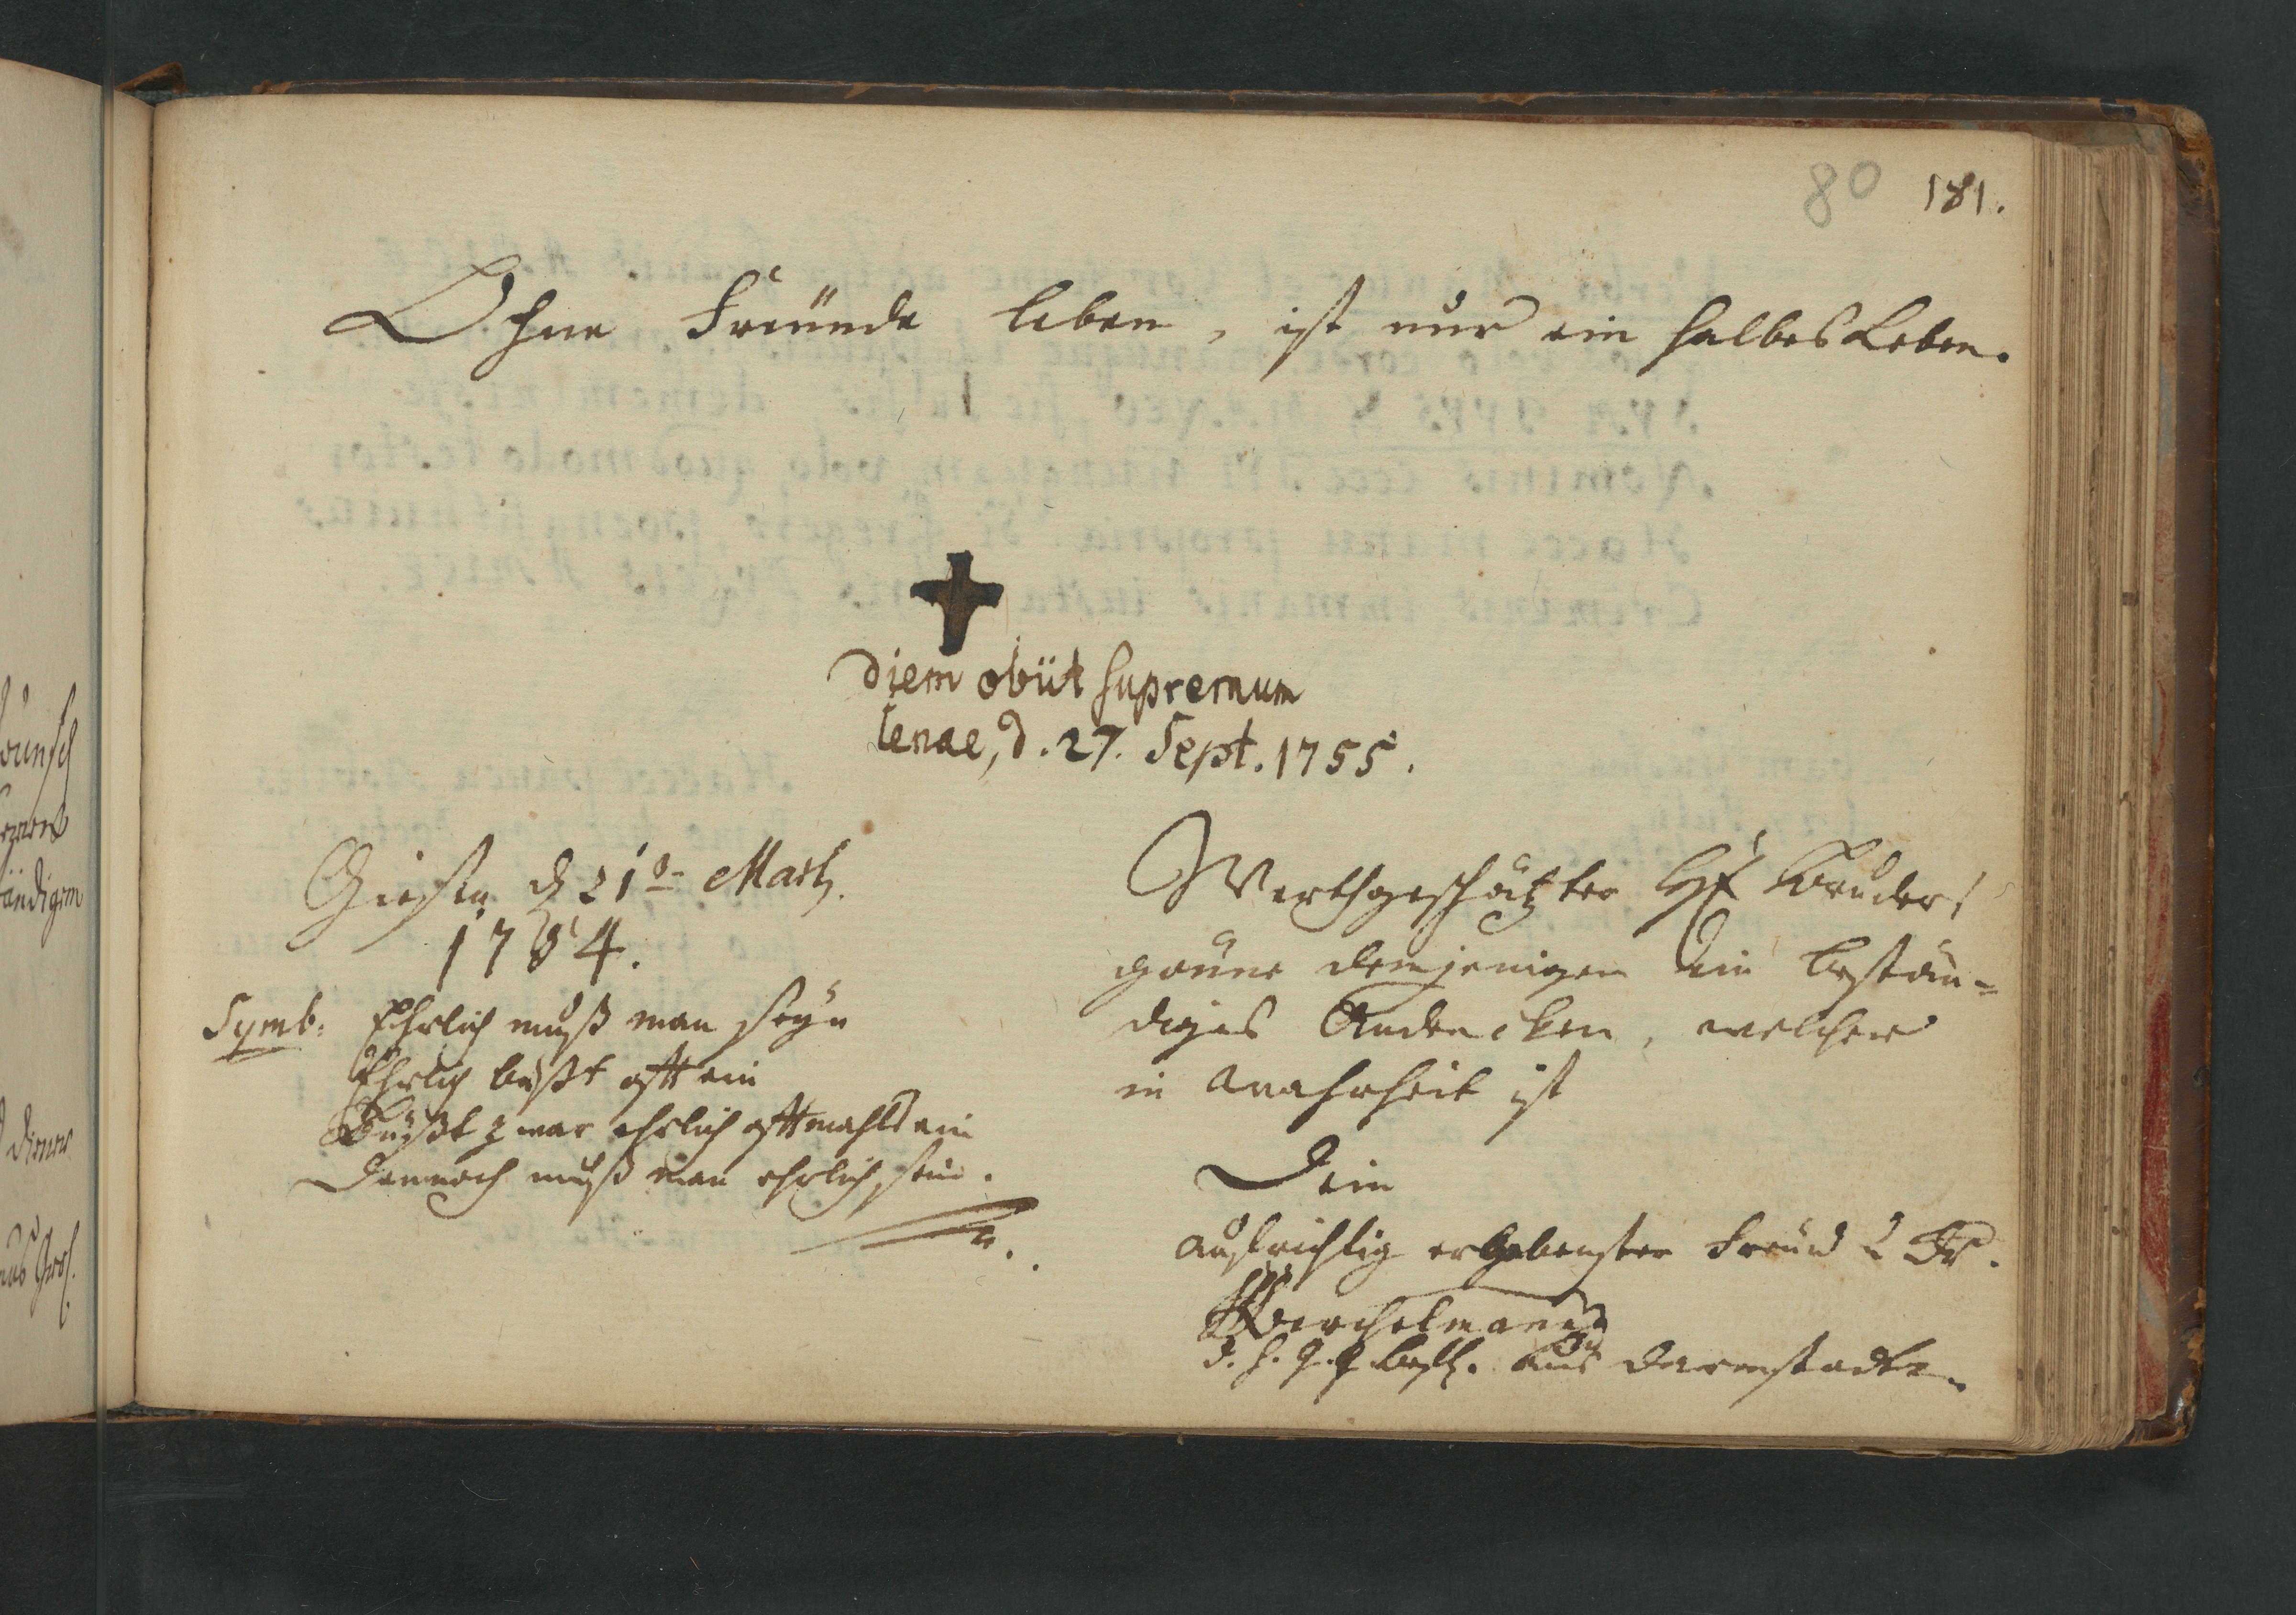 80 181.
Ohne Freünde leben, ist nur ein halbes Leben.
Diem obiit supremum
Ienae, d. 27. Sept. 1755.
Giessen d 21 Martz.
1754.
Symb: Ehrlich muß man seyn
Ehrlich büßt offt ein
Büßt zwar ehrlich offtmahls ein
Dennoch muß man ehrlich sein.
Werthgeschätzter Bruder!
gönne demjenigen ein bestän-
diges Andencken, welcher
in Wahrheit ist
Dein
aufrichtig ergebenster Freünd
aus Darmstadt